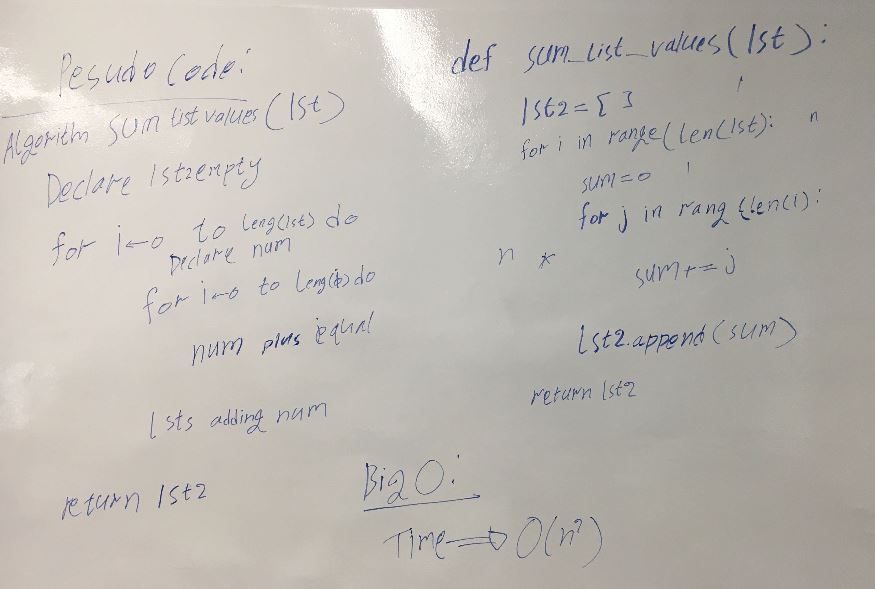 Pesudo Code:
Algorithm sum list values (lst)
Declare lst2 empty
for i←0 to Leng(lst) do
Declare num
for i←0 to Leng(i) do
num plus equal
lsts adding num
return lst2
def sum_list_values(lst):
lst2 = [ ]
for i in range(len(lst): n
sum=0
for j in rang (len(i):
n *
sum += j
lst2.append(sum)
return lst2
Big O:
Time ⇒ O(n²)